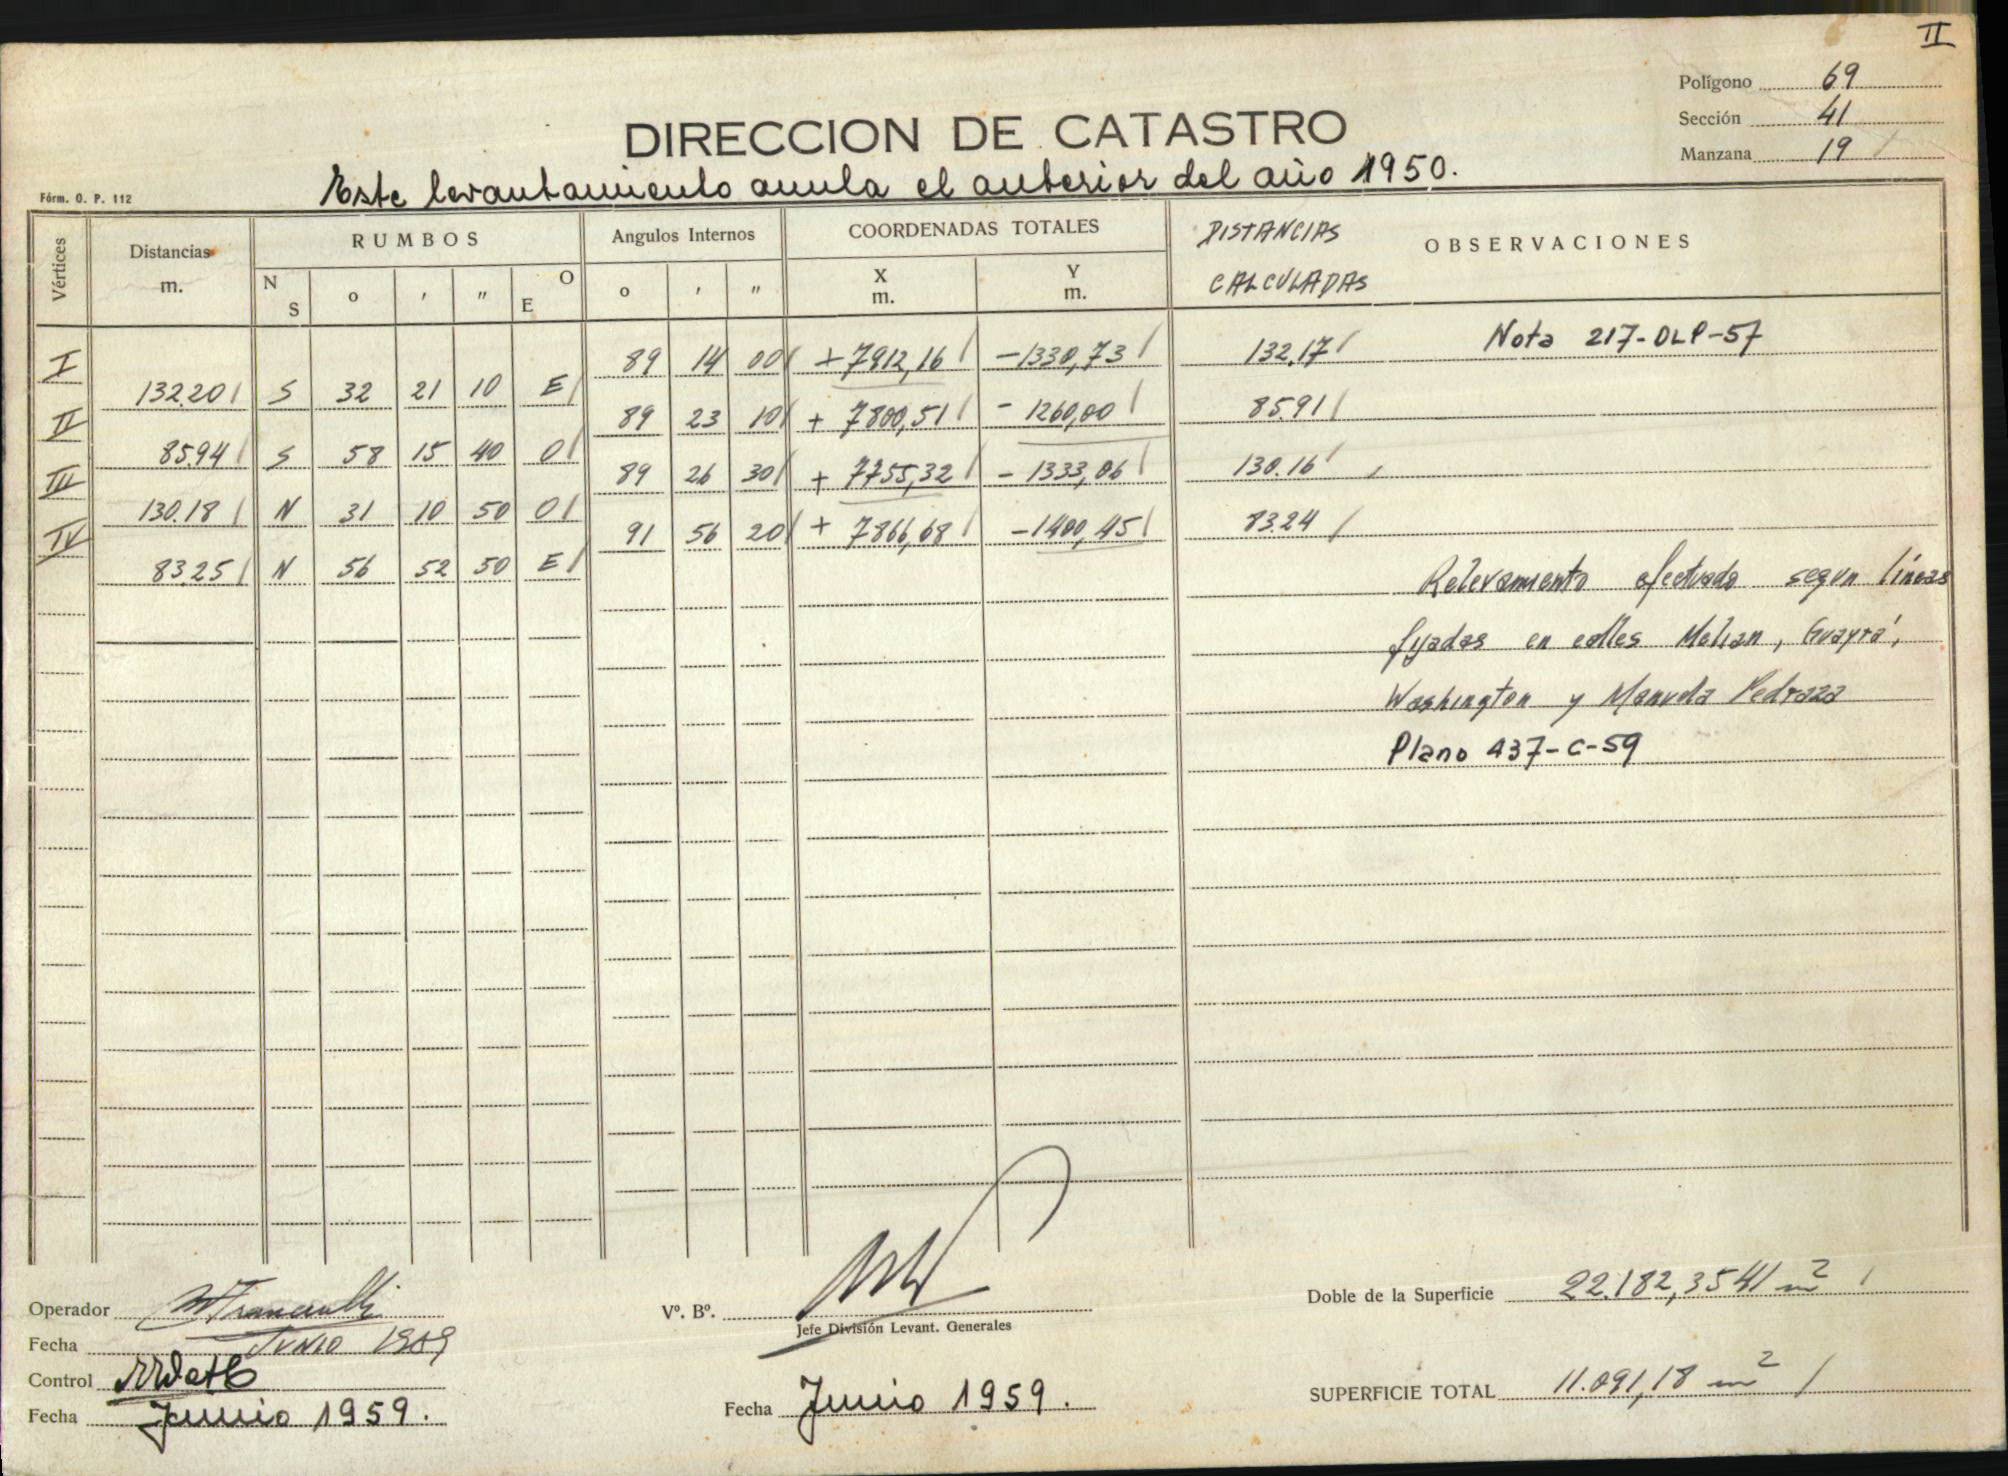 II
Polígono 69
Sección 41
Manzana 19
DIRECCION DE CATASTRO
Este levantamiento anula el anterior del año 1950.
Fórm. O. P. 112
Vértices Distancias m. RUMBOS N S o ' " O E Angulos Internos o ' " COORDENADAS TOTALES X m. Y m. DISTANCIAS CALCULADAS OBSERVACIONES
I 89 14 00 + 7912,16 - 1330,73 132.17 Nota 217-DLP-57
132.20 S 32 21 10 E
II 89 23 10 + 7800,51 - 1260,00 85.91
85.94 S 58 15 40 O
III 89 26 30 + 7755,32 - 1333,06 130.16
130.18 N 31 10 50 O
IV 91 56 20 + 7866,68 - 1400,45 83.24
83.25 N 56 52 50 E
Relevamiento efectuado segun líneas
fijadas en calles Melian, Guayrá,
Washington y Manuela Pedraza
Plano 437-C-59
Operador
Fecha Junio 1959
Control
Fecha Junio 1959.
Vº. Bº.
Jefe División Levant. Generales
Fecha Junio 1959.
Doble de la Superficie 22.182,3541 m2
SUPERFICIE TOTAL 11.091,18 m2